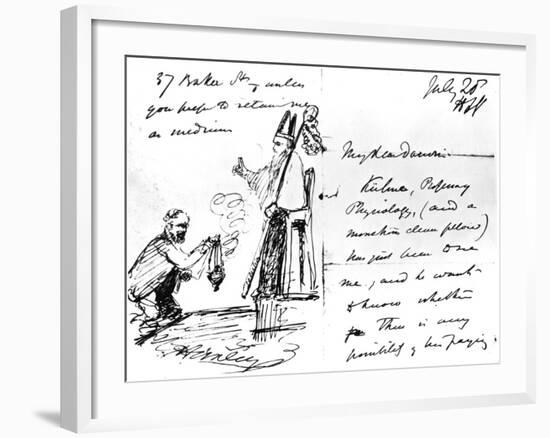 37 Baker St, unless
you prefer to retain me
as medium
July 20
My dear Darwin
Kühne, Prof. of
Physiology, (and a
monstrous clever fellow)
has just been to see
me, and he wants
to know whether
there is any
possibility of his paying